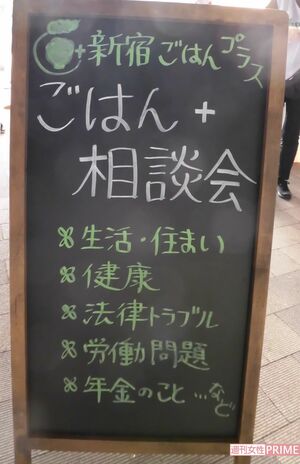 +新宿ごはんプラス
ごはん+
相談会
生活・住まい
健康
法律トラブル
労働問題
年金のこと…など
週刊女性PRIME